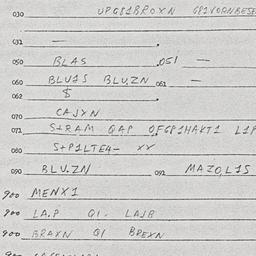 030 UPG81BROXN GP1VORNBESE
031 —
050 BLAS .051 —
060 BLU1S BLU.ZN 061 —
062 $
070 CAJYN
071 S+RAM QAP OFGP1HAKT1 L1P
080 S+P1LTE4- XY
090 BLU.ZN 091 MAZO,L1S
900 MENX1
900 LA.P Q1. LAJB
900 BRAXN Q1 BREXN